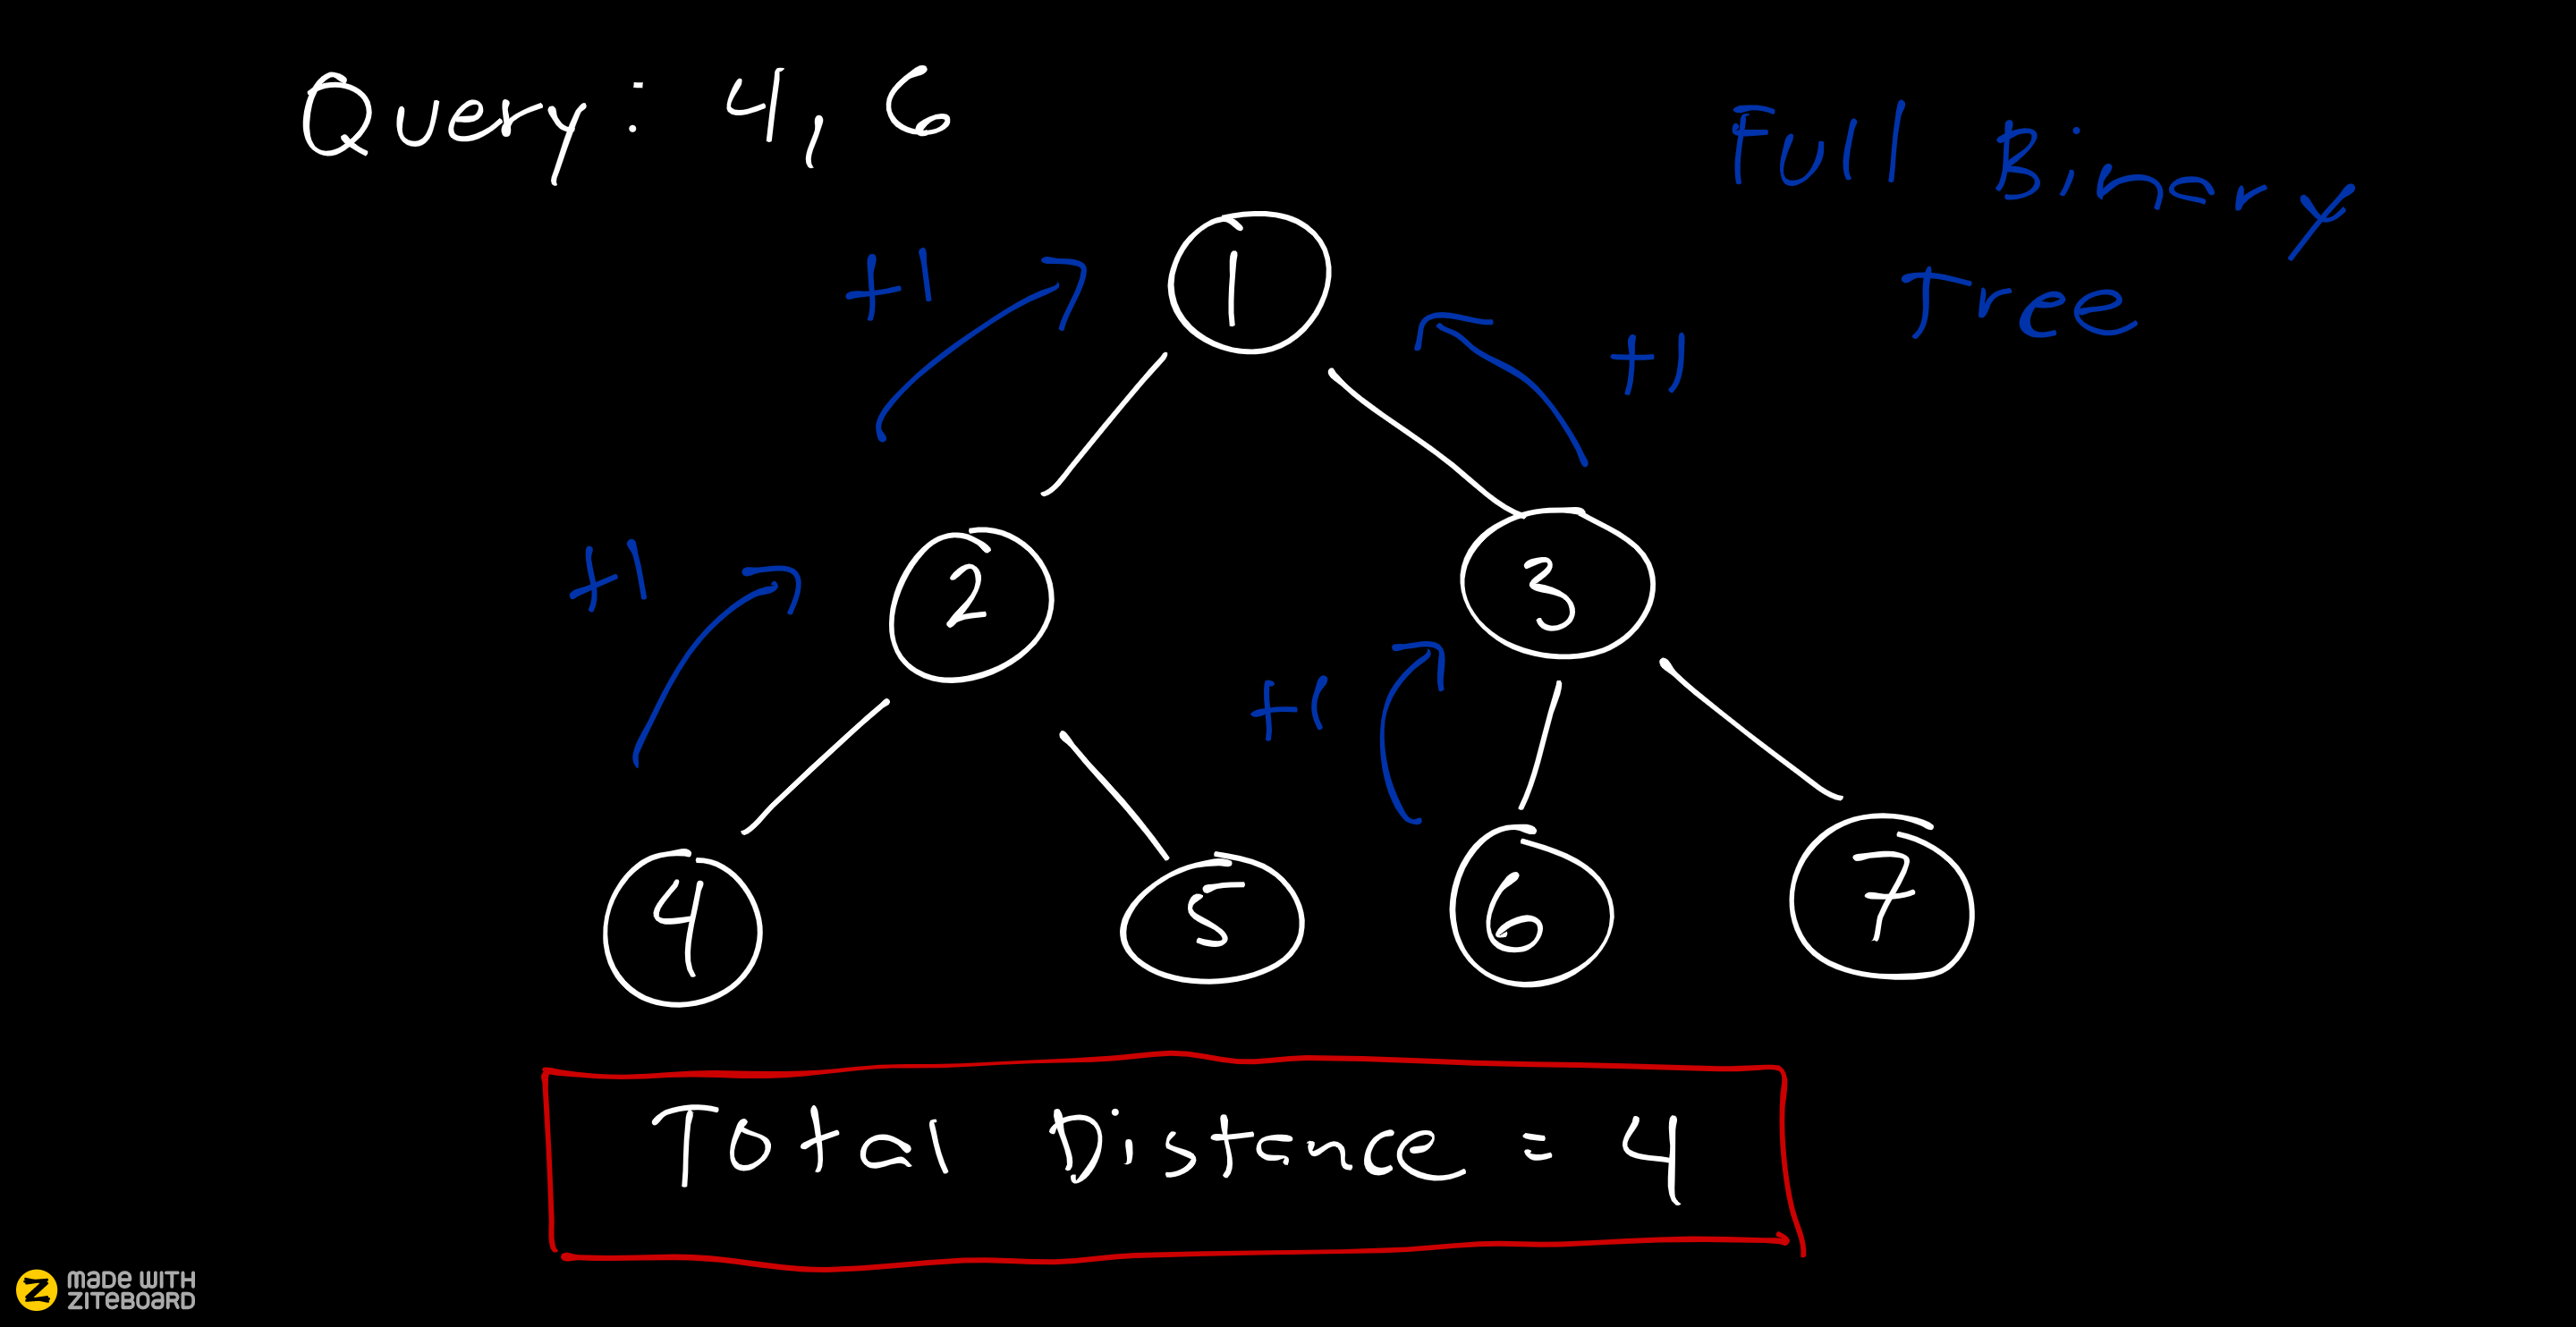 Query: 4, 6
Full Binary
Tree
+1
1
+1
+1
2
3
+1
4
5
6
7
Total Distance = 4
MADE WITH
ZITEBOARD